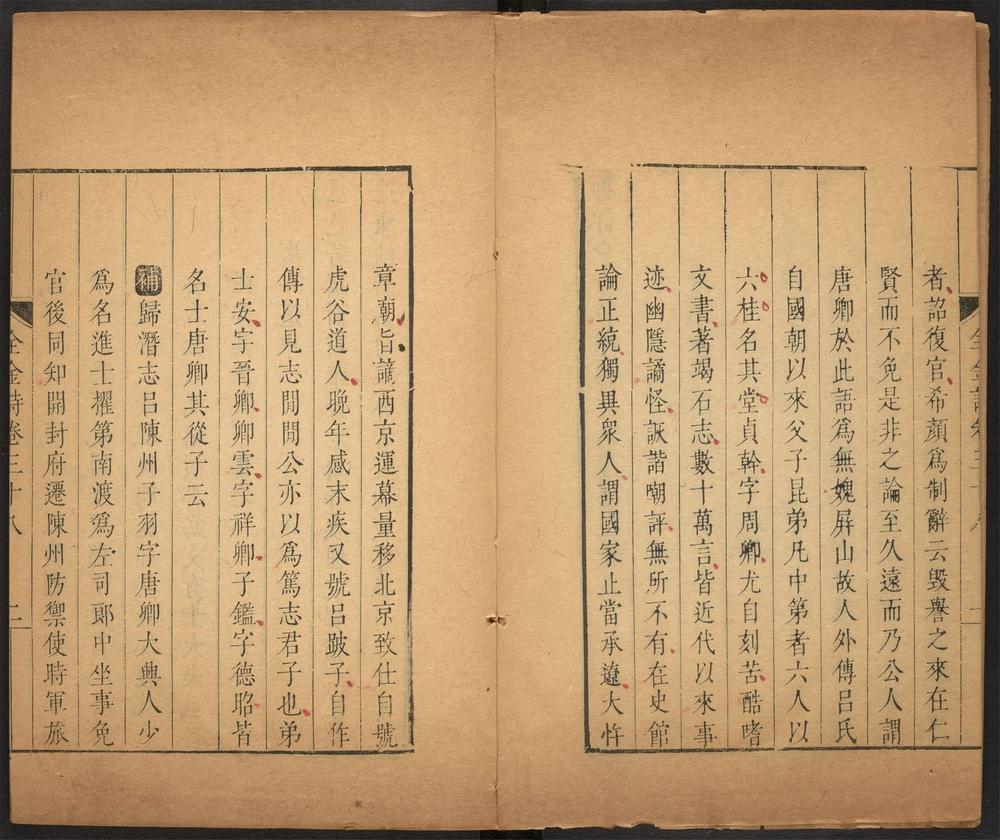 者詔復官希顏爲制辭云毀譽之來在仁
賢而不免是非之論至久遠而乃公人謂
唐卿於此語爲無媿屛山故人外傳呂氏
自國朝以來父子昆弟凡中第者六人以
六桂名其堂貞幹字周卿尤自刻苦酷嗜
文書著碣石志數十萬言皆近代以來事
迹幽隱譎怪詼諧嘲評無所不有在史館
論正統獨異衆人謂國家止當承遼大忤
章朝旨謫西京運幕量移北京致仕自號
虎谷道人晚年感末疾又號呂跛子自作
傳以見志閒閒公亦以爲篤志君子也弟
士安字晉卿卿雲字祥卿子鑑字德昭皆
名士唐卿其從子云
補歸潛志呂陳州子羽字唐卿大興人少
爲名進士擢第南渡爲左司郎中坐事免
官後同知開封府遷陳州防禦使時軍旅
全金詩卷三十八
二